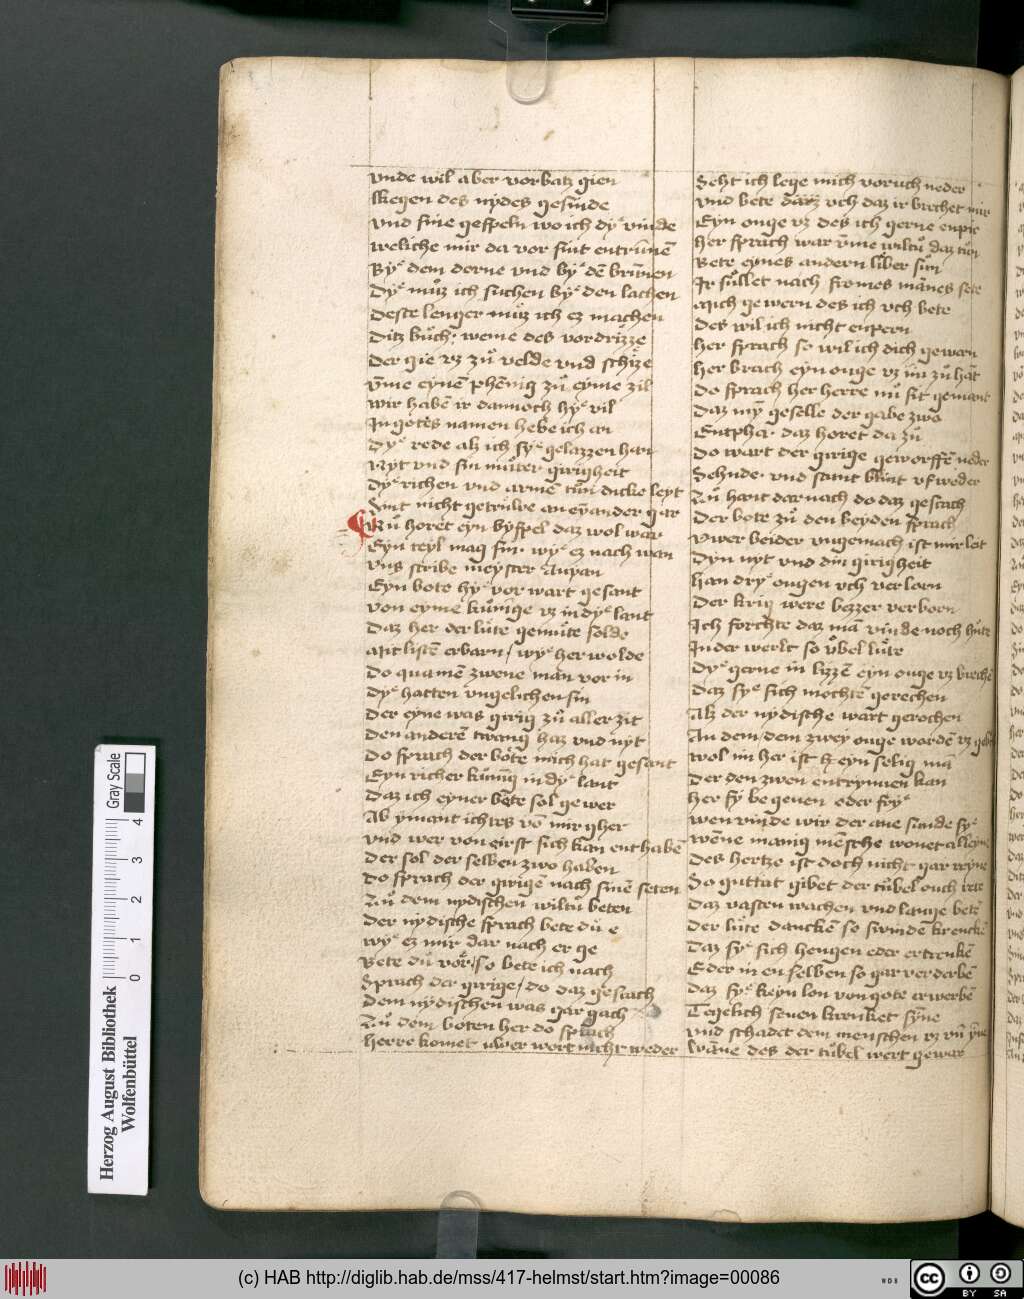 vnde wil aber vorbatz gien
kegen des nydes gesinde
vnd sine gespeln wo ich dy vinde
weliche mir da vor sint entrūnē
By dem dorne vnd by dē brūnen
Dy muͦz ich suchen by den lachen
Deste lenger muͦz ich ez machen
Ditz buͦch wene des vordrizze
Der gie vz zuͦ velde vnd schize
vme eynē phēnig zuͦ eyme zil
wir habē ir dannoch hy vil
In gotes namen hebe ich an
Dy rede alz ich sy gelazzen han
Nyt vnd sin muͦter girigheit
Dy richen vnd armē tuͦn dicke leyt
Sint nicht getruͦwe an eyander gar
Nu horet eyn byspel daz wol war
Eyn teyl mag sin wy ez nach wan
vns scribe meyster Auyan
Eyn bote hy vor wart gesant
von eyme kuͦnige vz in dy lant
Daz her der luͦte gemuͦte solde
Mit listē ervarn / wy her wolde
Do quamē zwene man vor in
Dy hatten vngelichen sin
Der eyne was girig zuͦ aller zit
Den anderē twang haz vnd nyt
Do sprach der bote mich hat gesant
Eyn richer kuͦnig in dy lant
Daz ich eyner bete sol gewer
Ab ymant ichtes vō mir gher
vnd wer von eirst sich kan enthabē
Der sol der selben zwo haben
Do sprach der girigē nach sinē seten
Zuͦ dem nydischen wiltu beten
Der nydische sprach bete du e
wy ez mir dar nach er ge
Bete du vor / so bete ich nach
Sprach der girige / do daz geschach
Dem nydischen was gar gach
Zuͦ dem boten her do sprach
Herre komet uwer wort nicht weder
Seht ich lege mich voruch neder
vnd bete daz vch daz ir brechet mir
Eyn ouge vz des ich gerne enpir
Her sprach war vme wiltu daz tuͦn
Bete eynes andern lieber suͦn
Ir suͦllet nach fromes mānes sete
Mich gewern des ich vch bete
Des wil ich nicht enpern
Her sprach so wil ich dich gewern
Her brach eyn ouge vz im zuͦ hāt
Do sprach her herre nu sit gemant
Daz my geselle der gabe zwo
Entpha daz horet da zuͦ
Do wart der girige geworffē neder
Sehnde vnd saint blint vf weder
Zuͦ hant dar nach do daz geschach
Der bote zuͦ den beyden sprach
vwer beider vngemach ist mir leit
Dyn nyt vnd din girigheit
Han dry ougen vch verlorn
Der krig were bezzer verborn
Ich forchte daz mā vinde noch huͦte
In der werlt so vͦbel luͦte
Dy gerne in lizzē eyn ouge vz breche
Daz sy sich mochtē gerechen
Alz der nydische wart gerochen
An dem / dem zwey ouge wordē vz
wol im her ist eyn selig mā
Der den zwen entrynnen kan
Her sy begeuen oder fry
wen vinde wir der ane sunde sy
wēne manig mēsche wonet alleyne
Des hertze ist doch nicht gar reyne
So guttat gibet der tuͦbel ouch rete
Daz vasten wachen vnd lange betē
Der luͦte danckē so swinde krenckē
Daz sy sich hengen eder ertrenkē
Eder in en selben so gar verderbē
Daz sy keyn lon von gote erwerbē
Tegelich seuen krenket syne
vnd schadet dem menschen vz vn yne
wāne des der tuͦbel wert gewar
Herzog August Bibliothek
Wolfenbüttel
Gray Scale
0 1 2 3 4
(c) HAB http://diglib.hab.de/mss/417-helmst/start.htm?image=00086
WDB
cc BY SA